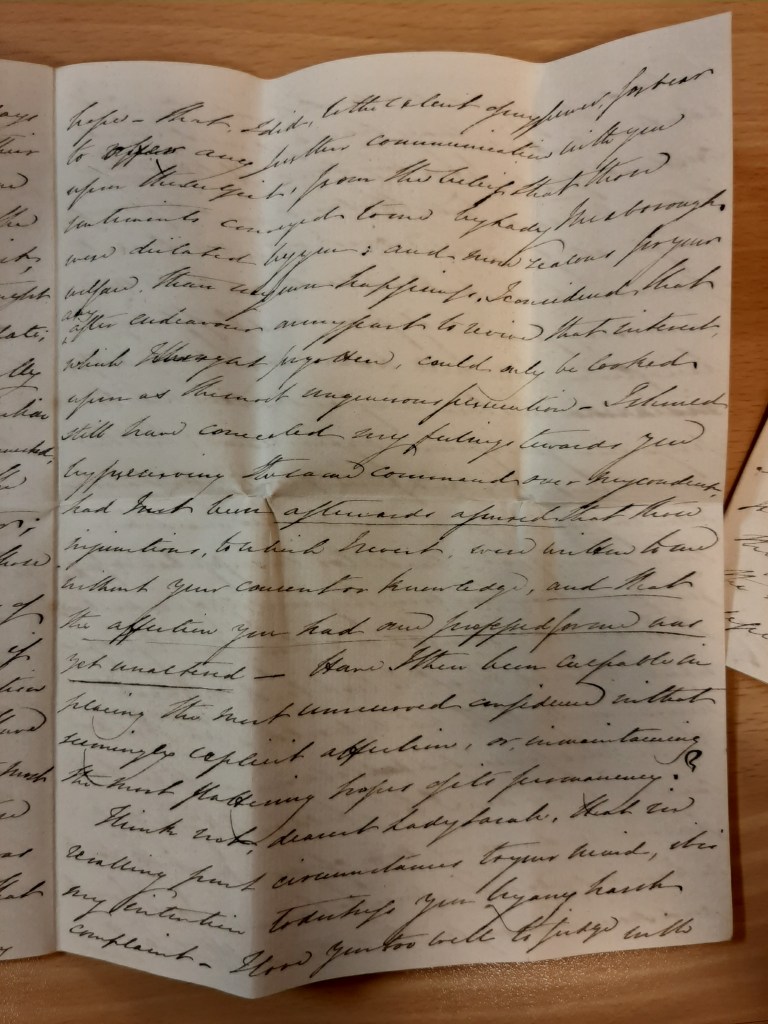 hope – that I did, to the extent of my power, forbear
to offer any further communication with you
upon the subject, from the belief that those
sentiments conveyed to me by Lady Mexborough
were dictated by you; and more zealous for your
welfare, than my own happiness, I considered that
any
after endeavour on my part to revive that interest,
which I thought forgotten, could only be looked
upon as the most ungenerous persecution – I should
still have concealed my feelings towards you
by preserving the same command over my conduct,
had I not been afterwards assured that those
injunctions, to which I revert, were written to me
without your consent or knowledge, and that
the affection you had once professed for me was
yet unaltered – Have I then been culpable in
placing the most unreserved confidence in that
seemingly explicit affection, or, in maintaining
the most flattering hopes of its permanency?
Think not, dearest Lady Sarah, that in
recalling past circumstances to your mind, it is
my intention to distress you by any harsh
complaint – I love you too well to judge with